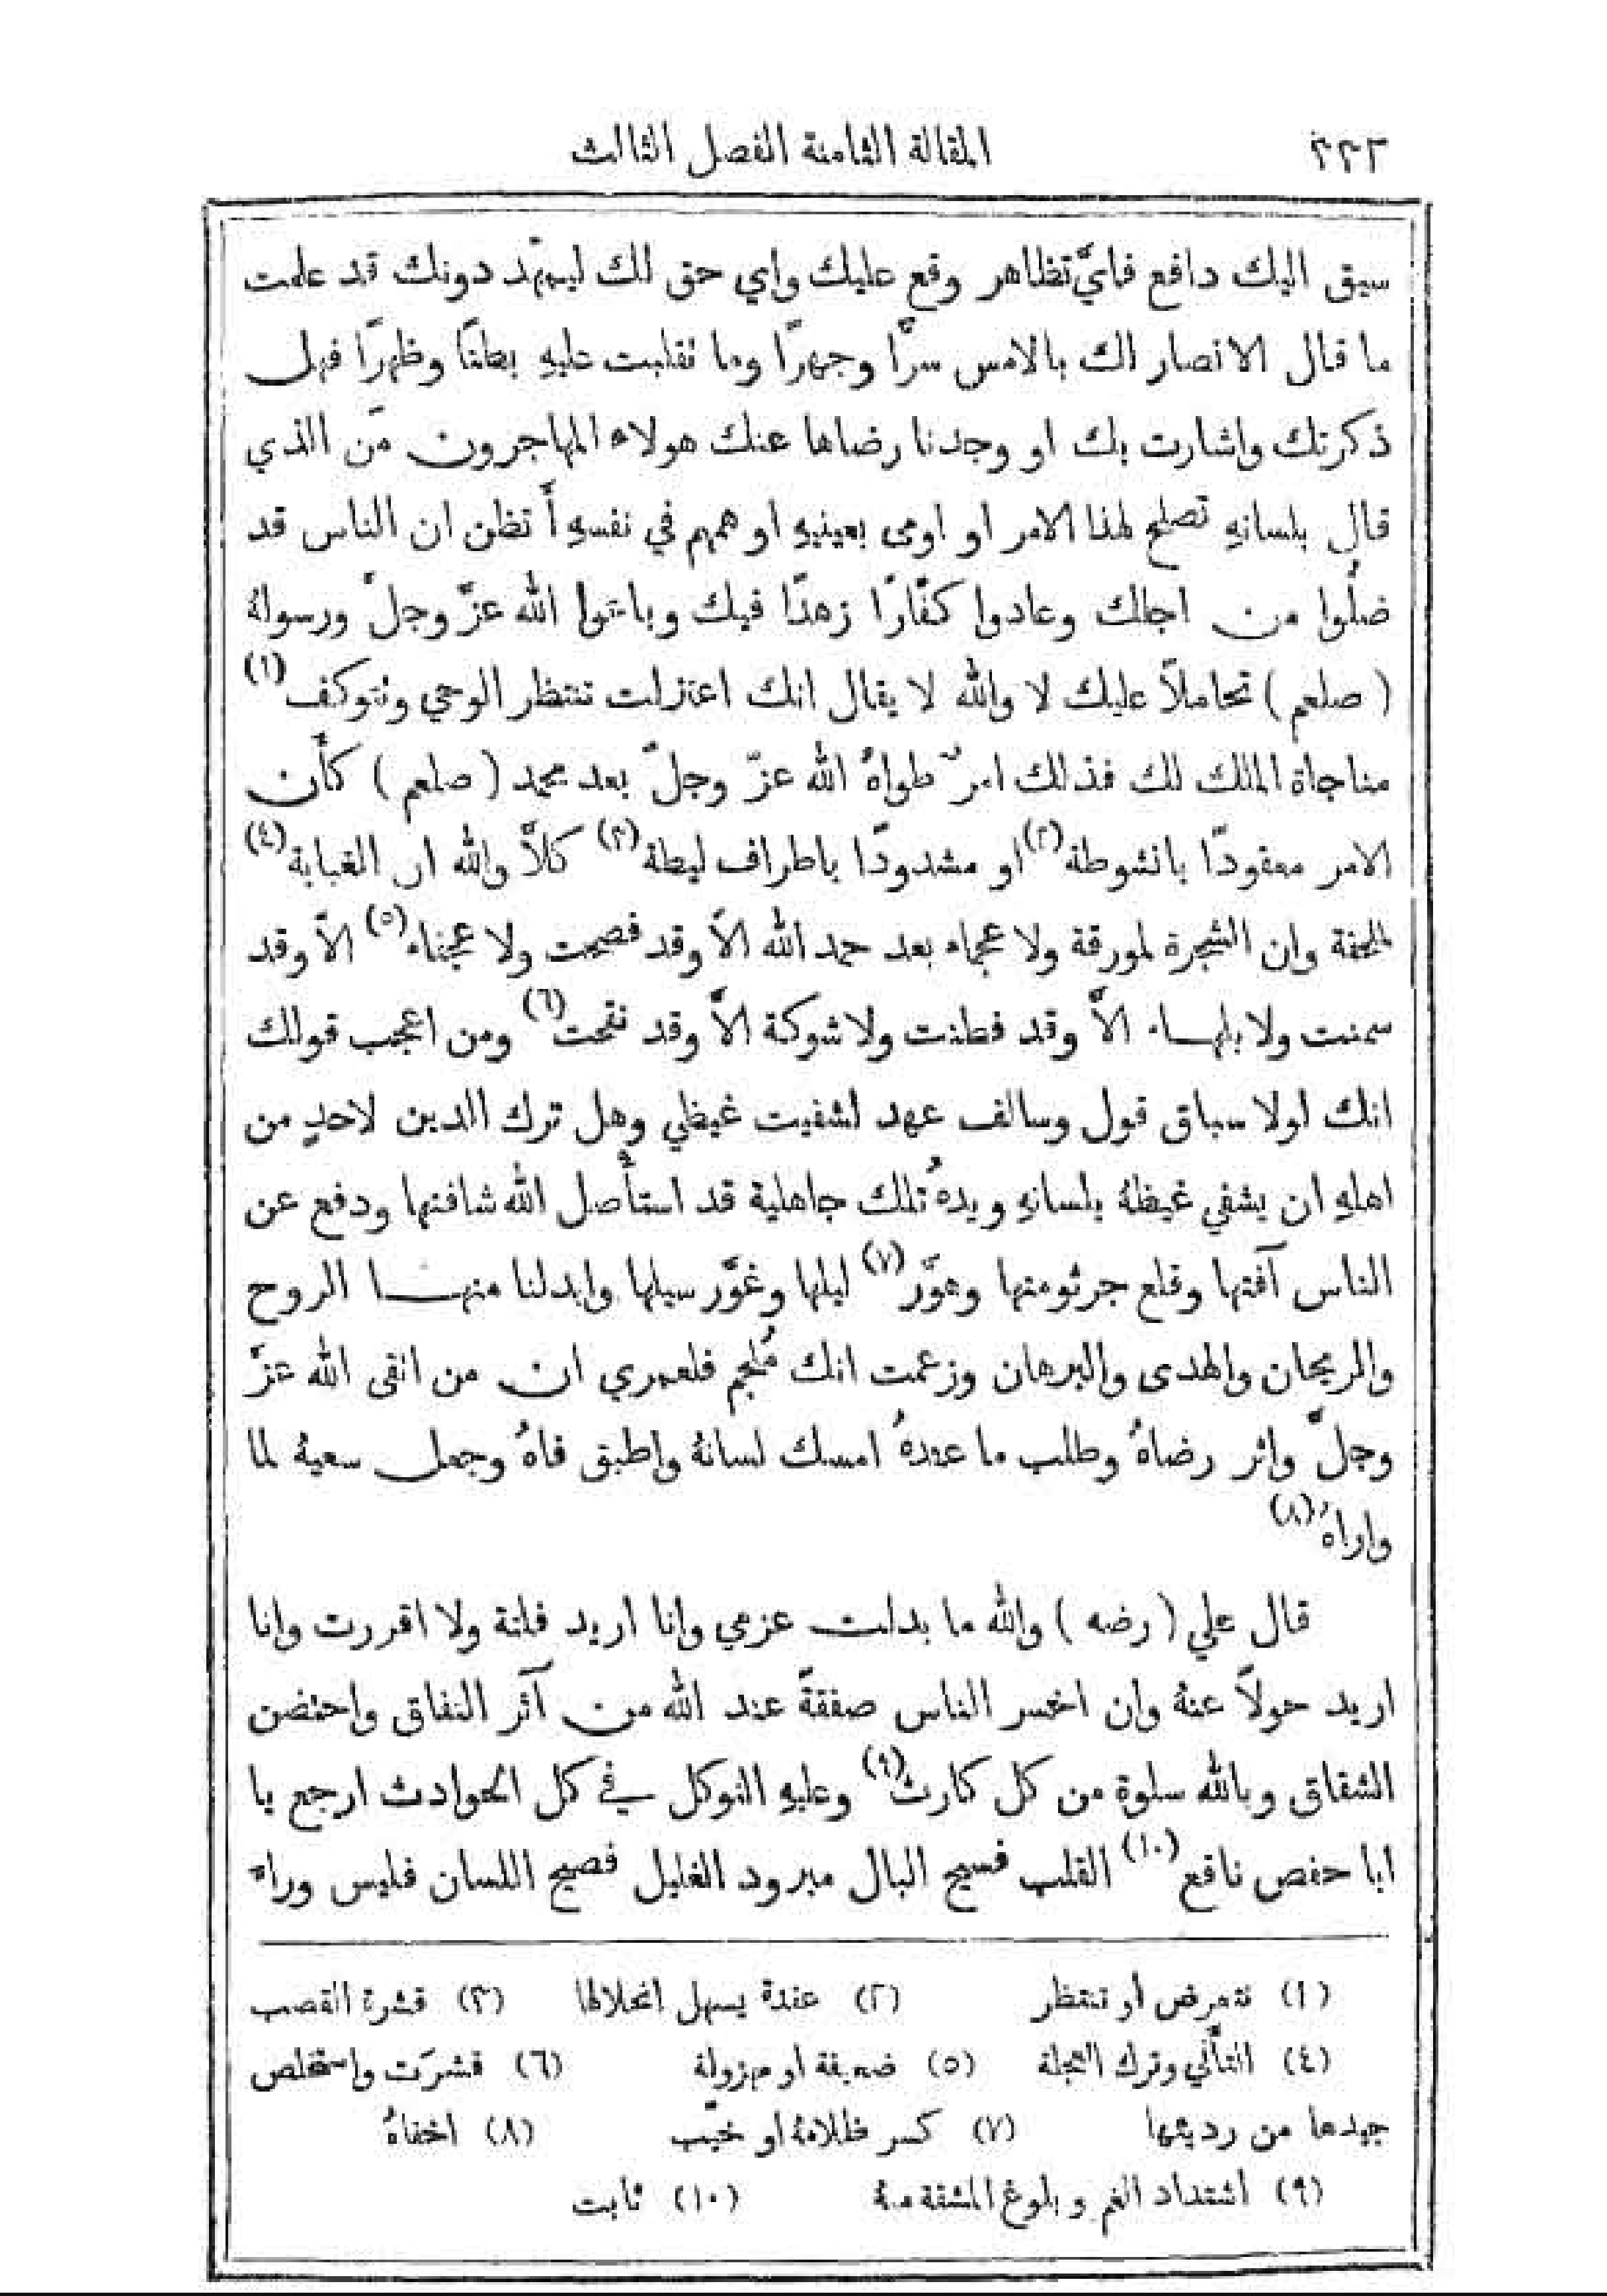 المقالة الثامنة الفصل الثالث ٢٢٢
سيق اليك دافع فايّ تظاهر وقع عليك واي حق لك ليمهّد دونك قد علمت
ما قال الانصار لك بالامس سرًّا وجهرًا وما تقلبت عليهِ بطنًا وظهرًا فهل
ذكرتك واشارت بك او وجدنا رضاها عنك هولاء المهاجرون مَن الذي
قال بلسانهِ تصلح لهذا الامر او اومى بعينيهِ او همهم في نفسهِ أَ تظن ان الناس قد
ضلُّوا من اجلك وعادوا كفَّارًا زهدًا فيك وباعوا الله عزَّ وجلَّ ورسولهُ
( صلعم ) تحاملاً عليك لا والله لا يقال انك اعتزلت تنتظر الوحي وتتوكف(١)
مناجاة الملك لك فذلك امرٌ طواهُ الله عزّ وجلّ بعد محمد ( صلعم ) كأَن
الامر معقودًا بانشوطة(٢) او مشدودًا باطراف ليطة(٣) كلاَّ والله ان الغيابة(٤)
لمجفة وان الشجرة لمورقة ولا عجماء بعد حمد الله الاَّ وقد فصحت ولا عجناء(٥) الاَّ وقد
سمنت ولا بلهاء الاَّ وقد فطنت ولا شوكة الاَّ وقد نقحت(٦) ومن اعجب قولك
انك لولا سباق قول وسالف عهد لشفيت غيظي وهل ترك الدين لاحدٍ من
اهلهِ ان يشفي غيظهُ بلسانهِ ويدهُ تلك جاهلية قد استأصل الله شافتها ودفع عن
الناس آفتها وقلع جرثومتها وعوَّر(٧) ليلها وغوَّر سيلها وابدلنا منها الروح
والريحان والهدى والبرهان وزعمت انك مُلجم فلعمري ان من اتقى الله عزَّ
وجلَّ واثر رضاهُ وطلب ما عندهُ امسك لسانهُ واطبق فاهُ وجعل سعيهُ لما
واراهُ(٨)
قال علي ( رضه ) والله ما بدلت عزمي وانا اريد فلتة ولا اقررت وانا
اريد حولاً عنهُ وان اخسر الناس صفقةً عند الله من آثر النفاق واحتضن
الشقاق وبالله سلوة من كل كارث(٩) وعليهِ التوكل في كل الحوادث ارجع يا
ابا حفص ناقع(١٠) القلب فسيح البال مبرود الغليل فصيح اللسان فليس وراء
(١) تتعرض أو تنتظر (٢) عقدة يسهل انحلالها (٣) قشرة القصب
(٤) التأَني وترك العجلة (٥) ضعيفة او مهزولة (٦) قشرَت واستخلص
جيدها من رديئها (٧) كسر ظلامهُ او خيّب (٨) اخفاهُ
(٩) اشتداد الغم وبلوغ المشقة منهُ (١٠) ثابت